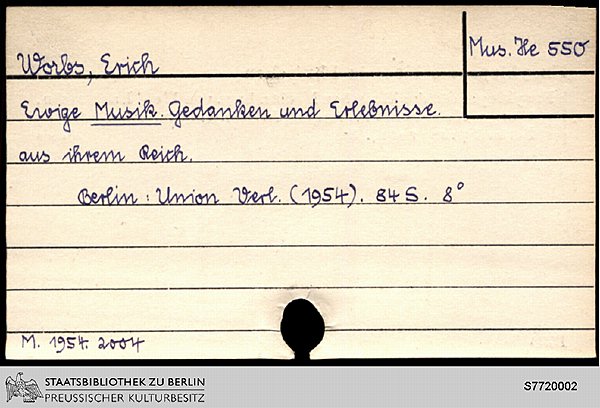 Worbs, Erich
Mus. He 550
Ewige Musik. Gedanken und Erlebnisse
aus ihrem Reich.
Berlin: Union Verl. (1954). 84 S. 8°
M. 1954. 2004
STAATSBIBLIOTHEK ZU BERLIN
PREUSSISCHER KULTURBESITZ
S7720002